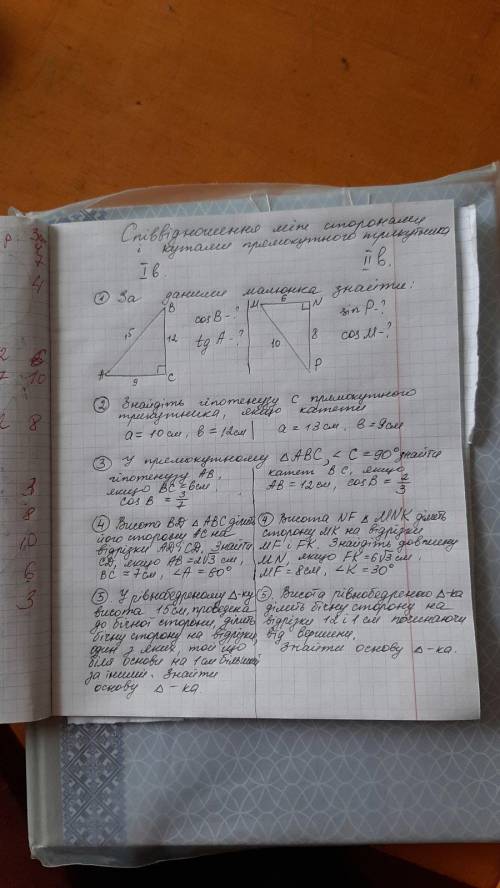 Співвідношення між сторонами
і кутами прямокутного трикутника
І в.
ІІ в.
① За даними малюнка знайти:
B
15
12
A
9
C
cos B - ?
tg A - ?
M
6
N
10
8
P
sin P - ?
cos M - ?
② Знайдіть гіпотенузу с прямокутного
трикутника, якщо катети
a = 10 см, b = 12 см
a = 13 см, b = 9 см
③ У прямокутному △ABC, ∠C = 90° знайти
гіпотенузу AB,
якщо BC = 6 см,
cos B = 3/7
катет BC, якщо
AB = 12 см, cos B = 2/3
④ Висота BD △ABC ділить
його сторону AC на
відрізки AD і CD. Знайти
CD, якщо AB = 2√3 см,
BC = 7 см, ∠A = 60°
④ Висота NF △ MNK ділить
сторону MK на відрізки
MF і FK. Знайдіть довжину
MN, якщо FK = 6√3 см,
MF = 8 см, ∠K = 30°
⑤ У рівнобедреному △-ку
висота 15 см, проведена
до бічної сторони, ділить
бічну сторону на відрізки,
один з яких, той що
біля основи на 1 см більший
за інший. Знайти
основу △-ка
⑤. Висота рівнобедреного △-ка
ділить бічну сторону на
відрізки 12 і 1 см починаючи
від вершини.
Знайти основу △-ка.
4
10
8
3
8
10
6
3